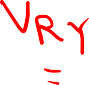 VRY
=